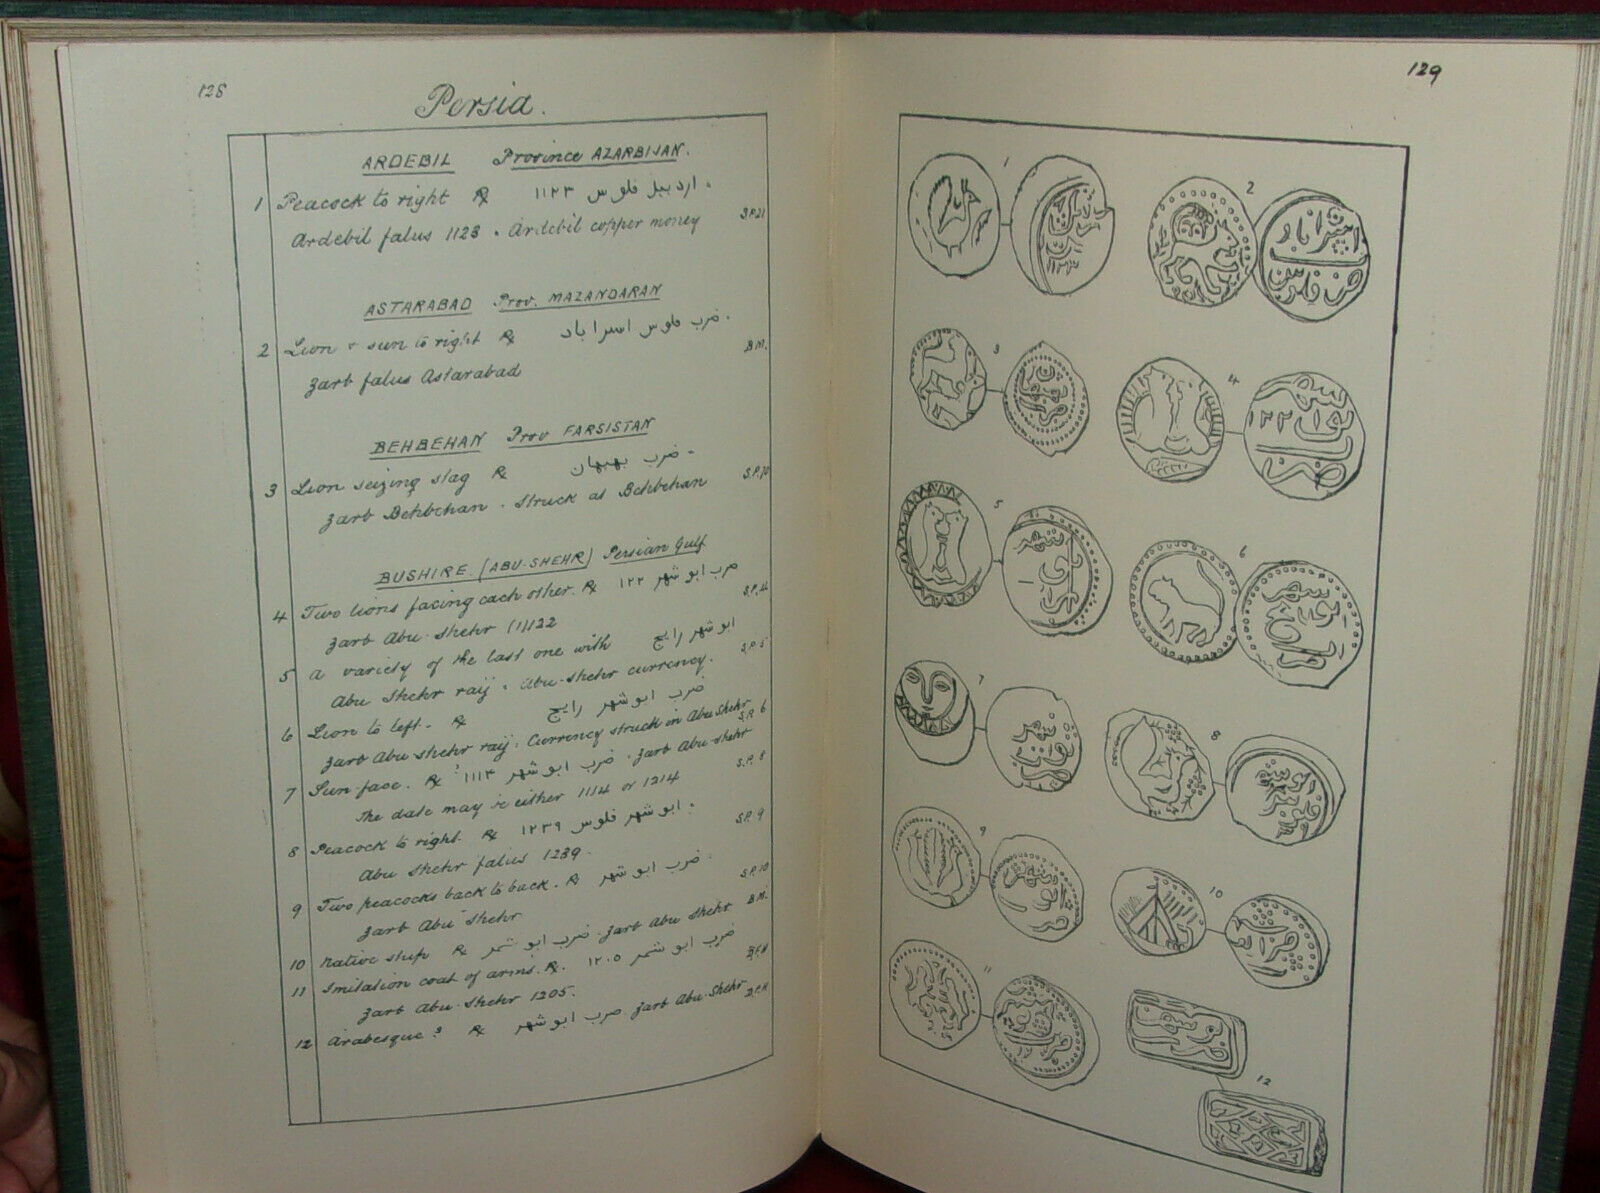 128
Persia.
ARDEBIL Province AZARBIJAN.
1 Peacock to right ℞ اردبيل فلوس ١١٢٣ .
Ardebil falus 1123 . Ardebil copper money S.P.21
ASTARABAD Prov. MAZANDARAN
2 Lion & sun to right ℞ ضرب فلوس استراباد . B.M.
Zarb falus Astarabad
BEHBEHAN Prov FARSISTAN
3 Lion seizing stag ℞ ضرب بهبهان . S.P.10
Zarb Behbehan . Struck at Behbehan
BUSHIRE. (ABU-SHEHR) Persian Gulf
4 Two lions facing each other. ℞ ضرب ابو شهر ١٢٢
Zarb Abu-Shehr (1)122
5 A variety of the last one with ابو شهر رايج S.P. 5
Abu Shehr raij . Abu-Shehr currency.
6 Lion to left. ℞ ضرب ابو شهر رايج
Zarb Abu-Shehr raij. Currency struck in Abu Shehr S.P. 6
7 Sun-face. ℞ ضرب ابو شهر ١١١۴ ? . Zarb Abu-Shehr
The date may be either 1114 or 1214 S.P. 8
8 Peacock to right. ℞ ابو شهر فلوس ١٢٣٩ .
Abu Shehr falus 1239. S.P. 9
9 Two peacocks back to back. ℞ ضرب ابو شهر .
Zarb Abu Shehr S.P. 10
10 Native ship ℞ ضرب ابو شهر . Zarb Abu Shehr B.M.
11 Imitation coat of arms. ℞. ضرب ابو شهر ١٢٠٥
Zarb Abu-Shehr 1205.
12 Arabesque ? ℞ ضرب ابو شهر . Zarb Abu-Shehr
129
1
2
3
4
5
6
7
8
9
10
11
12